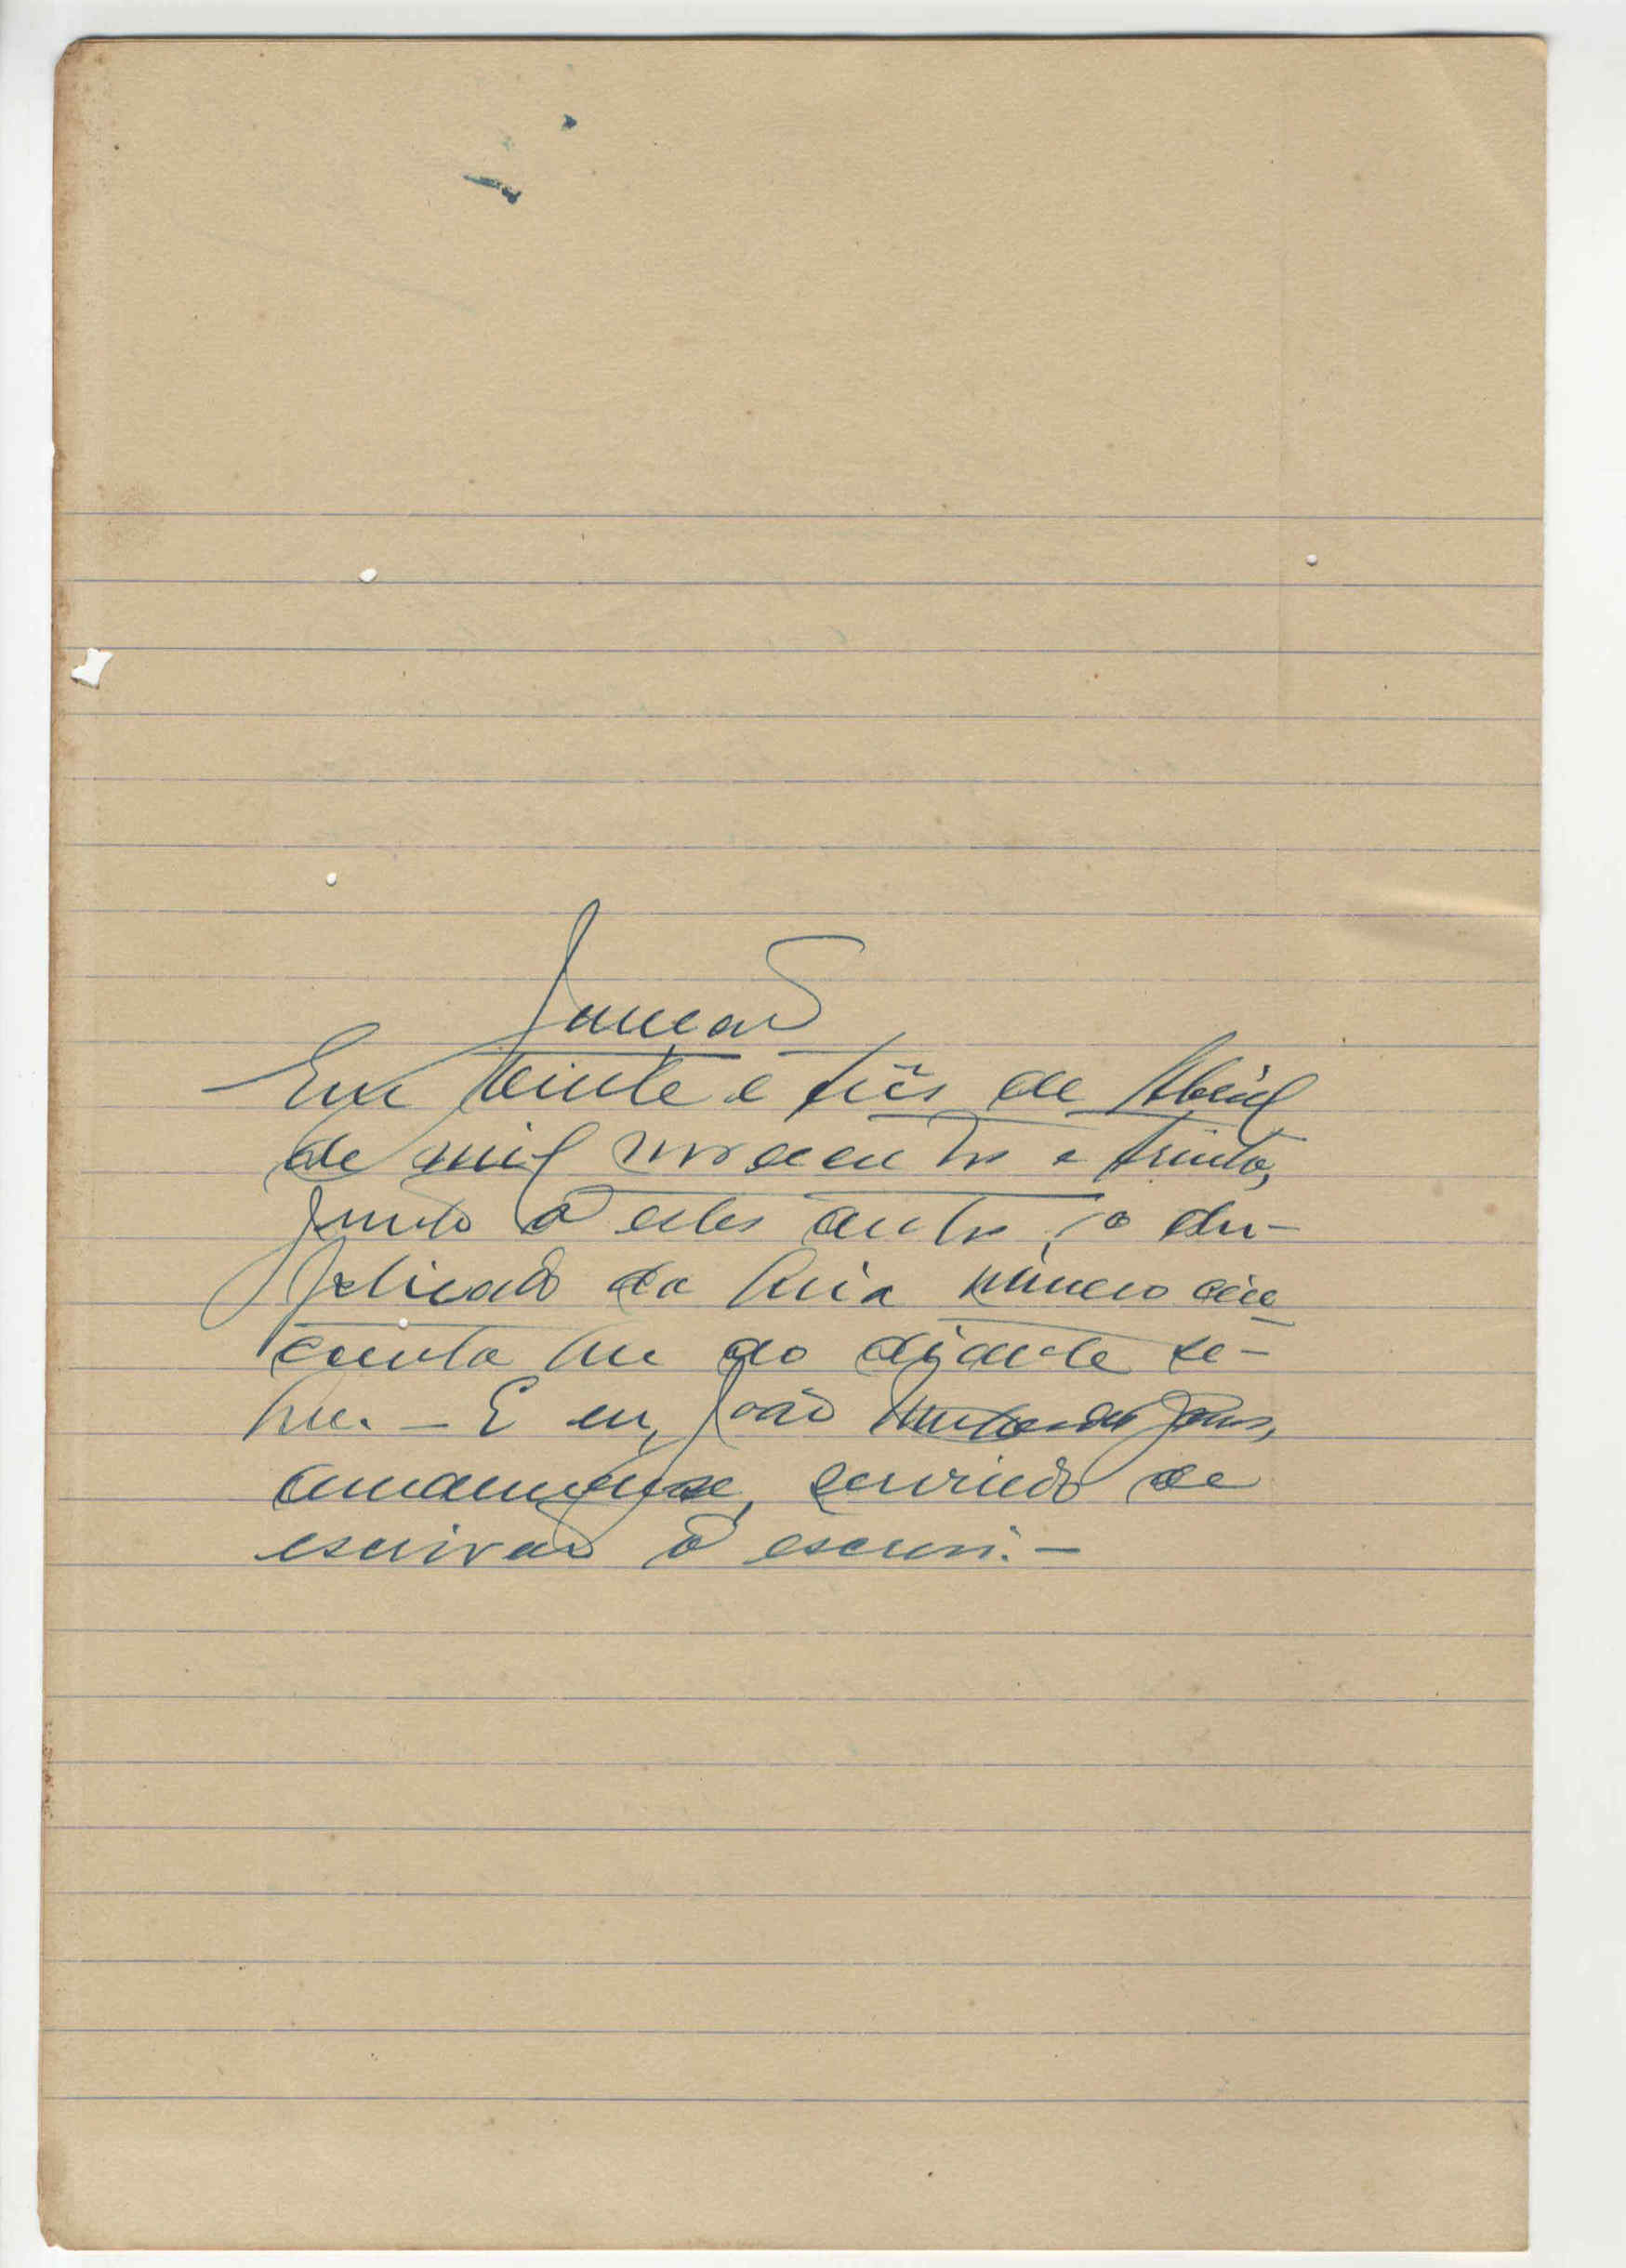 Juncção
Em vinte e três de Abril
de mil novecentos e trinta,
junto a estes autos, o du-
plicado da guia número cin
coenta que ao diante se-
gue. - E eu, João
amanuense, servindo de
escrivão o escrevi. -